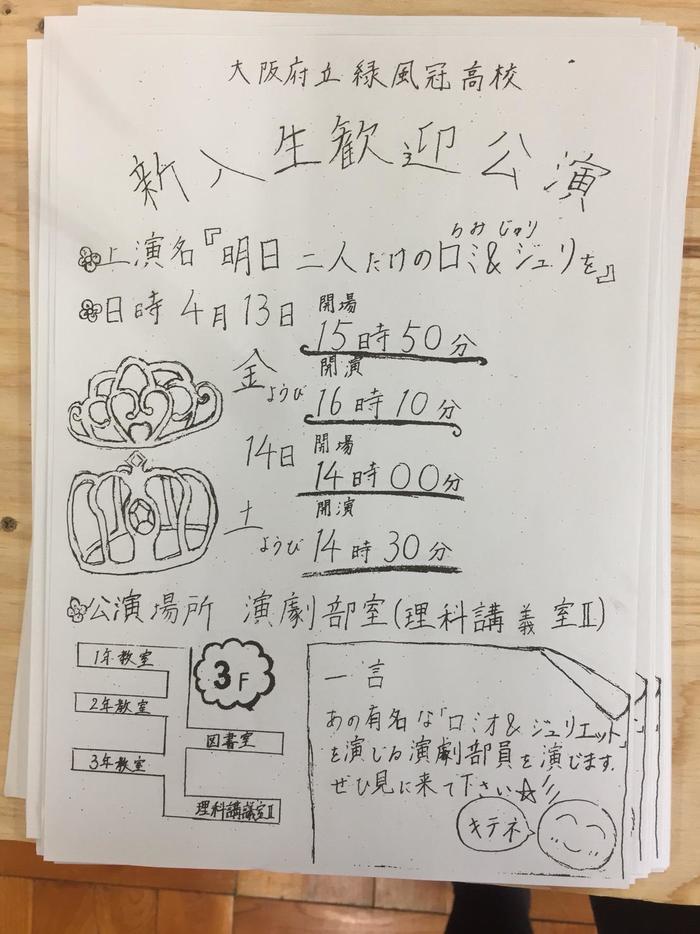 大阪府立緑風冠高校
新入生歓迎公演
ろみ じゅり
上演名『明日 二人だけのロミ&ジュリを』
日時 4月13日 開場
15時50分
金ようび 開演
16時10分
14日 開場
14時00分
土ようび 開演
14時30分
公演場所 演劇部室(理科講義室Ⅱ)
1年教室
2年教室
3年教室
3F
図書室
理科講義室Ⅱ
一言
あの有名な「ロミオ&ジュリエット」
を演じる演劇部員を演じます.
ぜひ見に来て下さい☆
キテネ